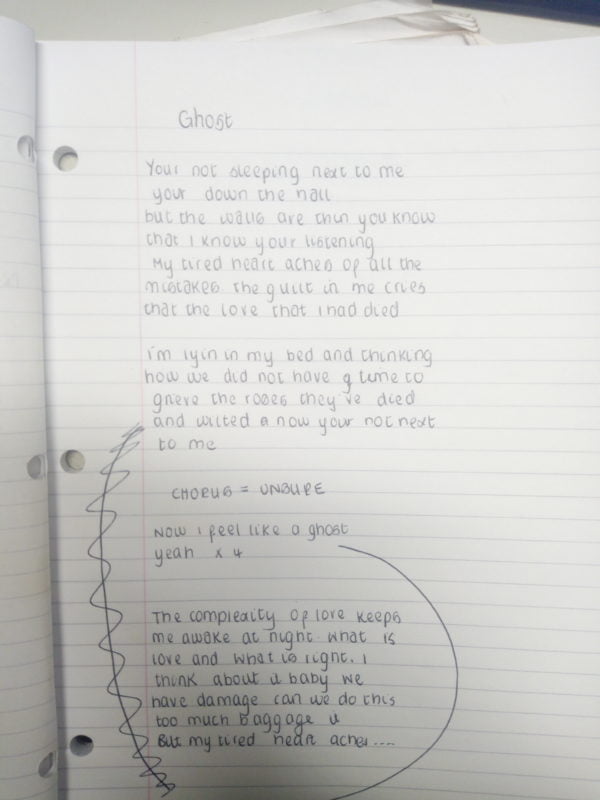 Ghost
Your not sleeping next to me
your down the hall
but the walls are thin you know
that I know your listening
My tired heart aches of all the
mistakes the guilt in me cries
that the love that I had died
i'm lyin in my bed and thinking
how we did not have time to
grieve the roses they've died
and wilted now your not next
to me
CHORUS = UNSURE
Now i feel like a ghost
yeah x 4
The complexity of love keeps
me awake at night. what is
love and what is right. I
think about it baby we
have damage can we do this
too much baggage
But my tired heart aches....